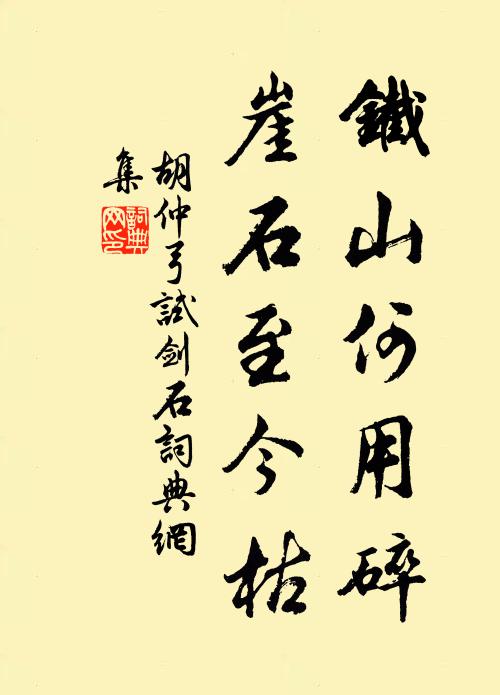 鐵山何用碎
崖石至今枯
胡仲弓試劍石詞典網
集
詞典
网印